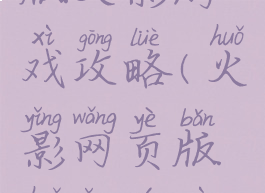 xì gōng lüè huǒ
戏攻略(火
yǐng wǎng yè bǎn
影网页版